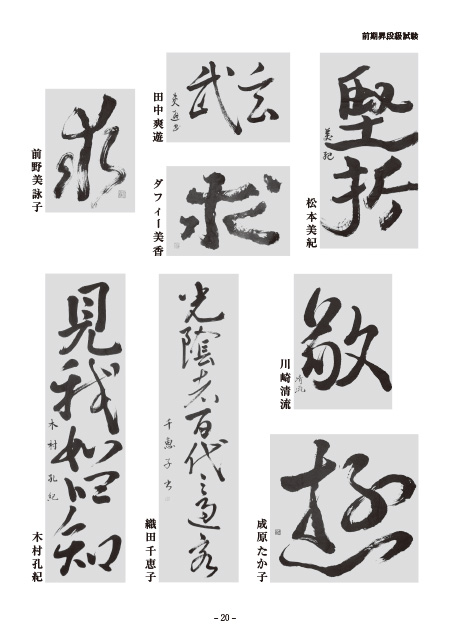 前期昇段級試験
堅折
美紀
松本美紀
玄武
爽遊書
田中爽遊
ダフィー美香
求
前野美詠子
敬
清流
川崎清流
成原たか子
光陰者百代之過客
千恵子書
織田千恵子
見我如
知
木村孔紀
木村孔紀
– 20 –